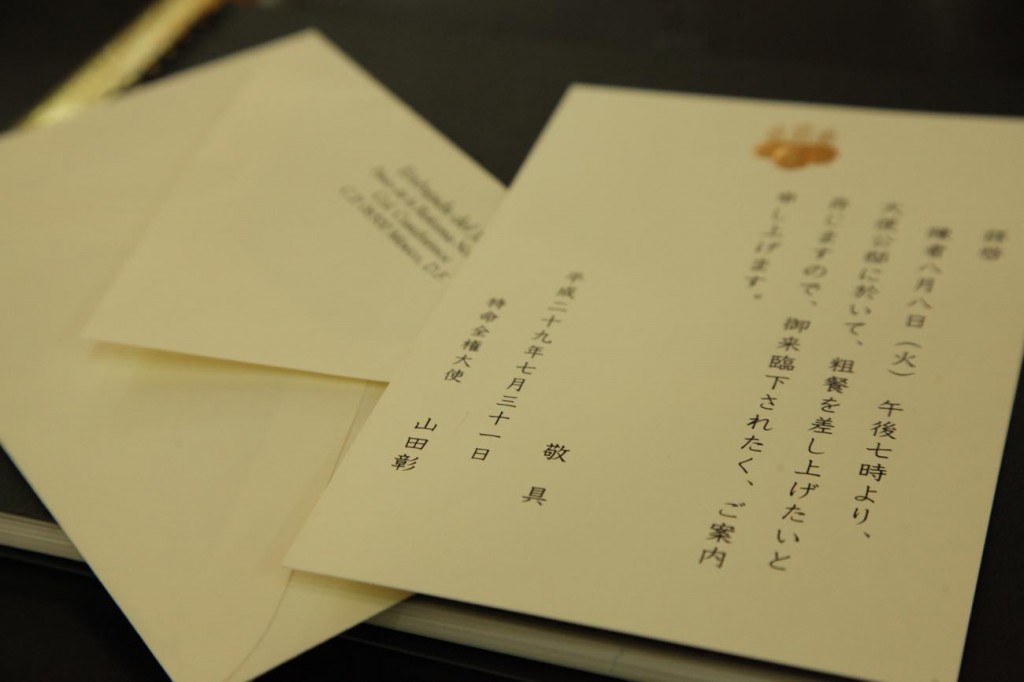 拝啓
陳者八月八日（火）　午後七時より、
大使公邸に於いて、粗餐を差し上げたいと
存じますので、御来臨下されたく、ご案内
申し上げます。
敬具
平成二十九年七月三十一日
特命全権大使　山田彰
Embajada del
Paseo de la Reforma No.
Col. Cuauhtémoc
C.P. 06500 México, D.F.